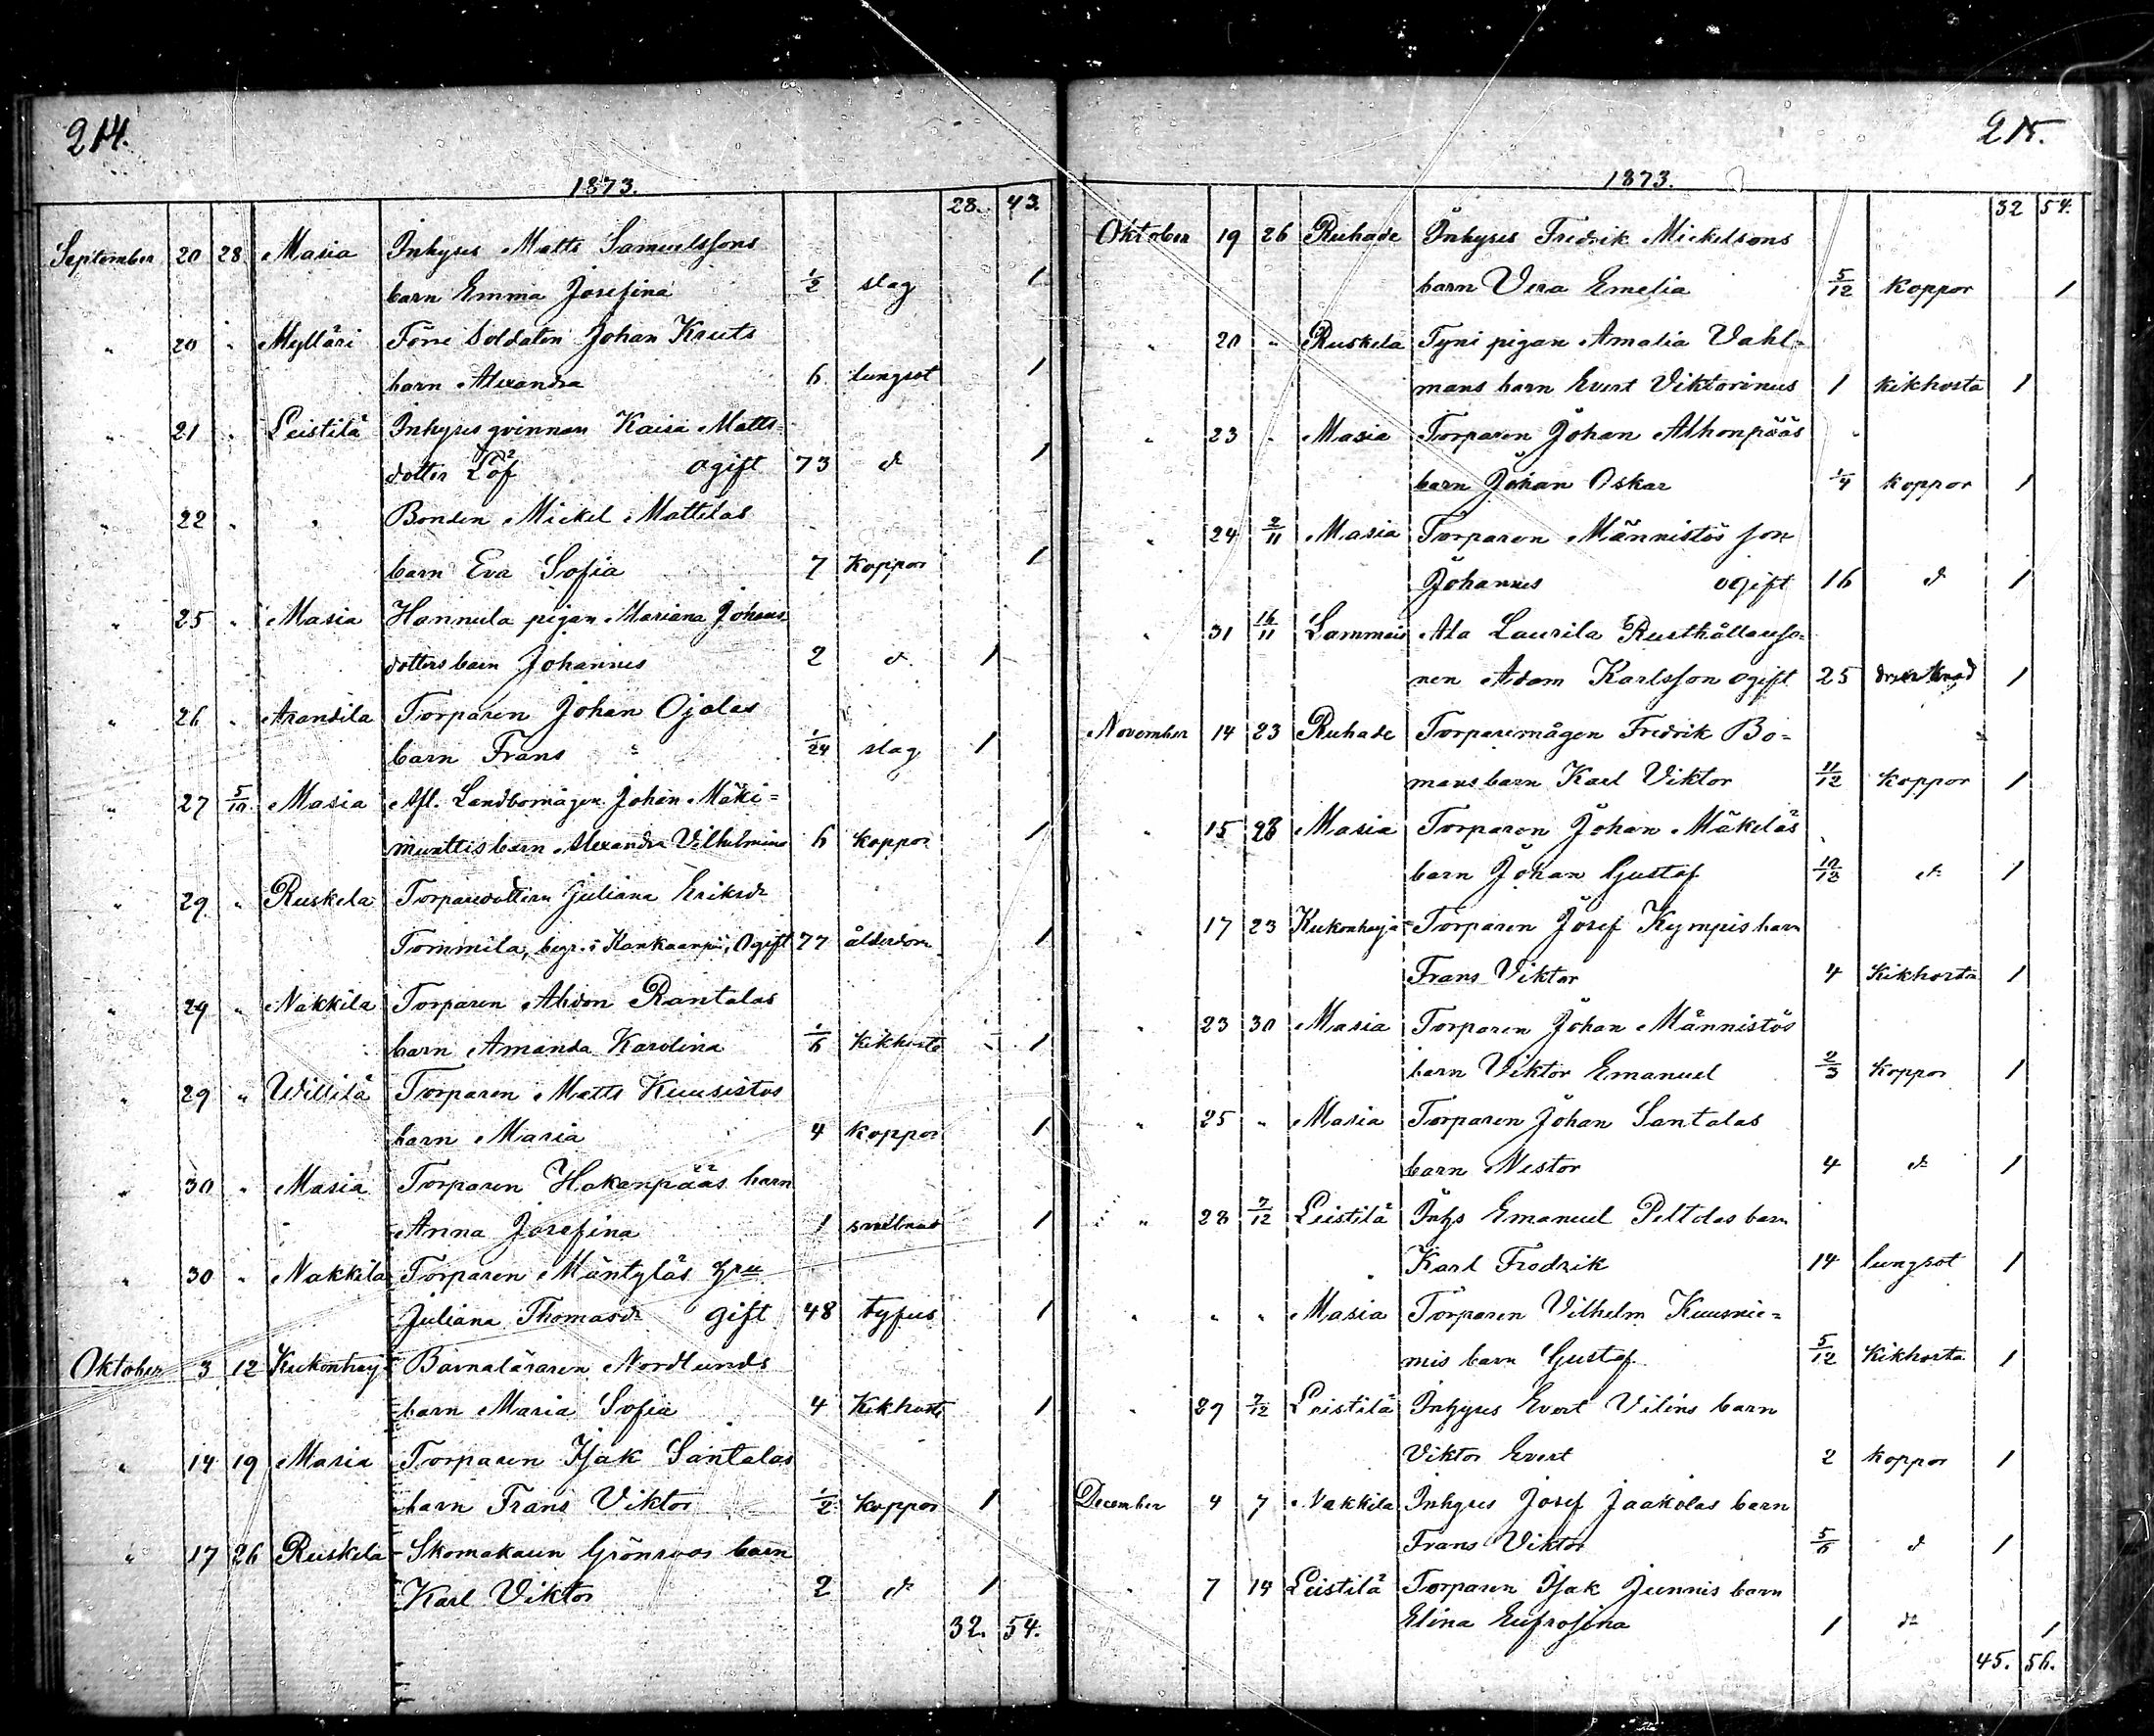 214.
1873.
28. 43.
September 20 28 Masia Inhyses Matts Samuelssons
barn Emma Josefina 1/2 slag 1
" 20 " Mylläri Förre Soldaten Johan Kruts
barn Alexandra 6 lungsot 1
" 21 " Leistilä Inhyses qvinnan Kaisa Matts-
dotter Löf ogift 73 d 1
" 22 " " Bonden Mickel Mattilas
barn Eva Sofia 7 Koppor 1
" 25 " Masia Hannula pigan Mariana Johans
dotters barn Johannes 2 d. 1
" 26 " Arandila Torparen Johan Ojalas
barn Frans 1/24 slag 1
" 27 5/10 Masia Afl. Landbomågen Johan Mäki=
muattis barn Alexandra Vilhelmina 6 koppor 1
" 29 " Ruskela Torparedottern Juliana Eriksdr
Tommila, begr. i Kankaanpää, Ogift 77 ålderdom 1
" 29 " Nakkila Torparen Ahdon Rantalas
barn Amanda Karolina 1/6 Kikhosta 1
" 29 " Willilä Torparen Matts Kuusistos
barn Maria 4 koppor 1
" 30 " Masia Torparen Hakanpääs barn
Anna Josefina 1 1
" 30 " Nakkila Torparen Mäntyläs hru
Juliana Thomasdr gift 48 tyfus 1
Oktober 3 12 Kukonharja Barnaläraren Nordlunds
barn Maria Sofia 4 Kikhosta 1
" 14 19 Masia Torparen Isak Santalas
barn Frans Viktor 1/2 koppor 1
" 17 26 Ruskela Skomakaren Grönroos barn
Karl Viktor 2 d 1
32. 54.
215.
1873.
32 54.
Oktober 19 26 Ruhade Inhyses Fredrik Mickelsons
barn Vera Emelia 5/12 Koppor 1
" 20 " Ruskela Tyni pigan Amalia Vahl-
mans barn Evert Viktorinus 1 kikhosta 1
" 23 " Masia Torparen Johan Alhonpääs
barn Johan Oskar 1/4 koppor 1
" 24 2/11 Masia Torparen Männistös son
Johannes ogift 16 d 1
" 31 16/11 Lammais Ala Laurila Rusthållareso-
nen Adam Karlsson ogift 25 1
November 14 23 Ruhade Torparemågen Fredrik Bo-
mans barn Karl Viktor 11/12 Koppor 1
" 15 23 Masia Torparen Johan Mäkeläs
barn Johan Gustaf 10/12 d 1
" 17 23 Kukonharja Torparen Josef Kympis barn
Frans Viktor 4 Kikhosta 1
" 23 30 Masia Torparen Johan Männistös
barn Viktor Emanuel 2/3 Koppor 1
" 25 " Masia Torparen Johan Santalas
barn Nestor 4 d 1
" 28 7/12 Leistilä Inhs Emanuel Peltolas barn
Karl Fredrik 14 lungsot 1
" " " Masia Torparen Vilhelm Kuusnie=
mis barn Gustaf 5/12 Kikhosta 1
" 29 7/12 Leistilä Inhyses Evert Viléns barn
Viktor Evert 2 Koppor 1
December 4 7 Nakkila Inhyses Josef Jaakolas barn
Frans Viktor 5/6 d 1
" 7 14 Leistilä Torparen Isak Junnis barn
Elina Eufrosina 1 d 1
45. 56.